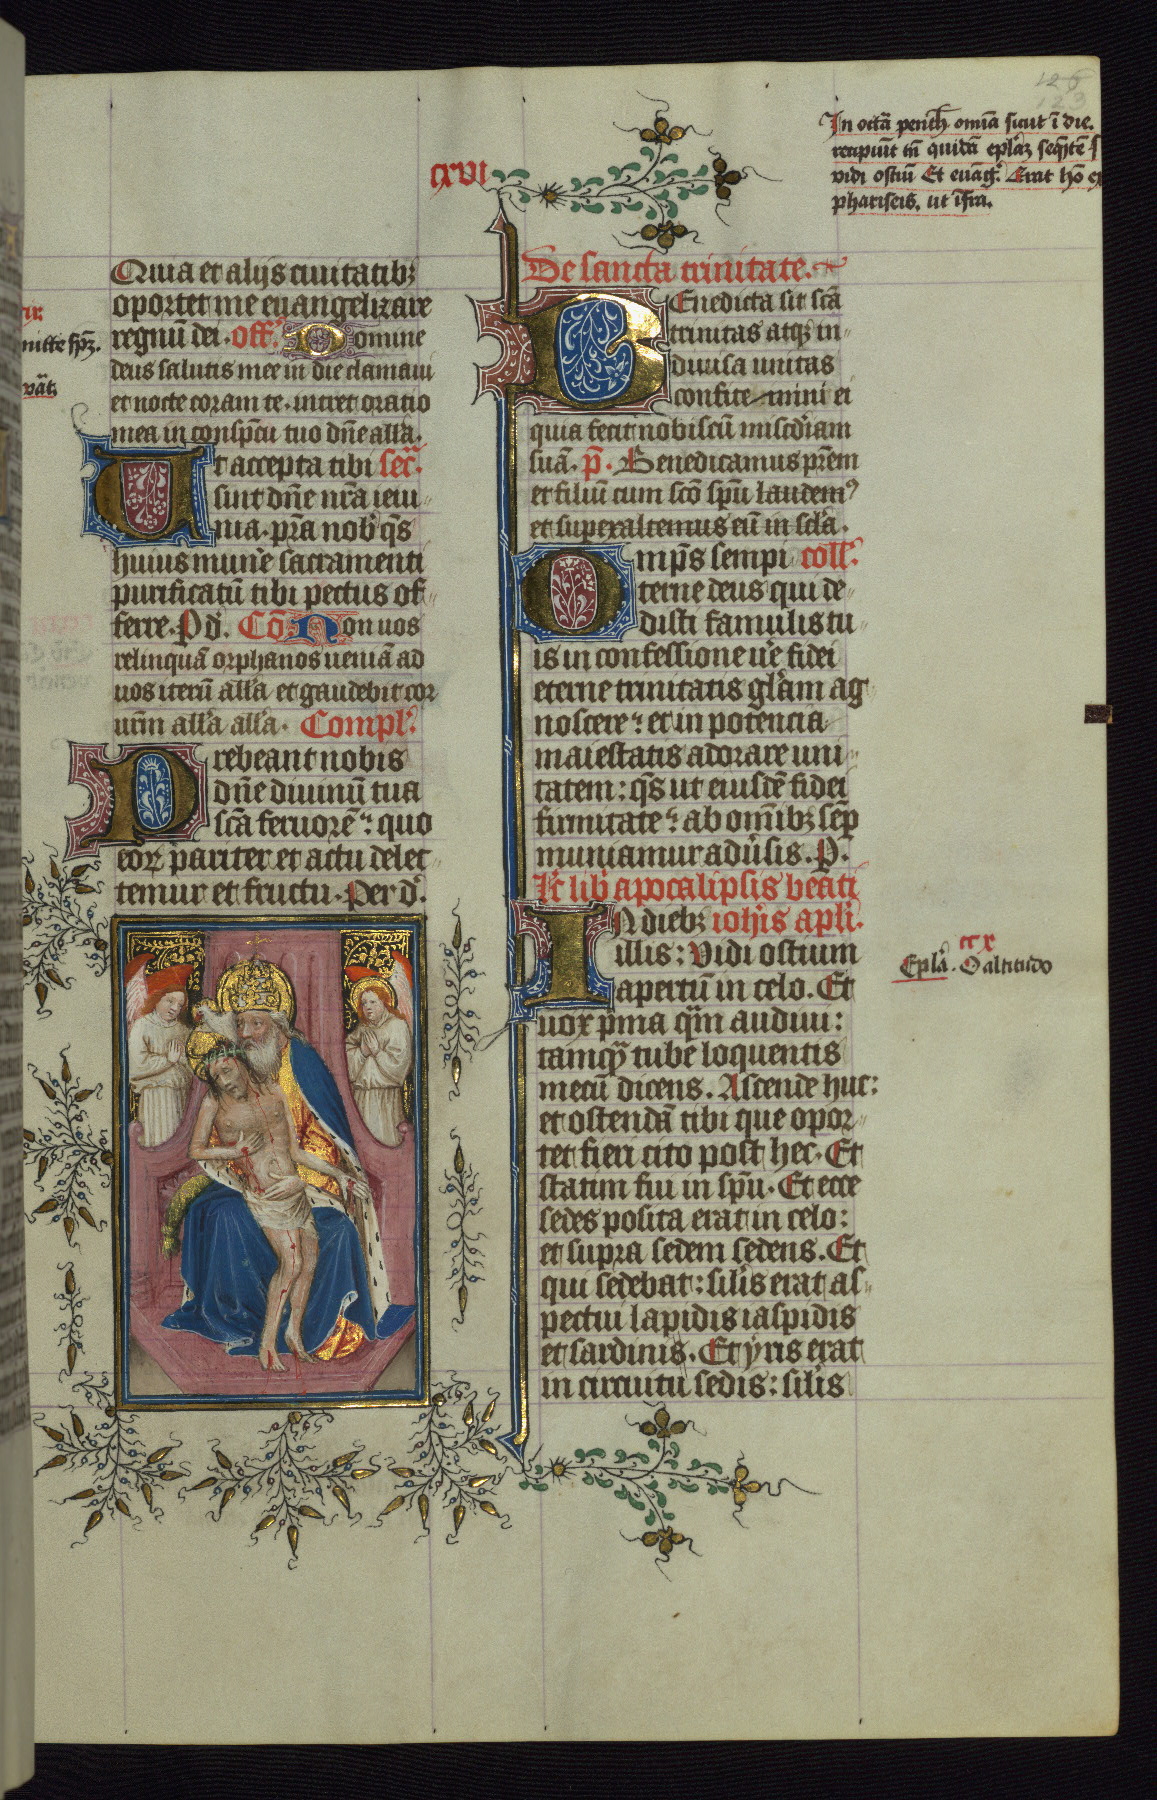 cxvi
123
In octā penth̄. omīa sicut ī die.
recipiūt tn̄ quidā eplāȝ seq̄ntē s
vidi ostiū Et euāḡ. Erat hō ex
phariseis. ut īfra.
Quia et alijs ciuitatibȝ
oportet me euangelizare
regnū dei. off. Domine
deus salutis mee in die clamaui
et nocte coram te. intret oratio
mea in conspc̄u tuo dn̄e all'a.
Ut accepta tibi secr̄.
sint dn̄e nr̄a ieiu-
nia. pr̄a nob' qs̄
huius mun'e sacramenti
purificatū tibi pectus of-
ferre. P d'. Cō Non uos
relinquā orphanos ueniā ad
uos iterū all'a et gaudebit cor
urm̄ all'a all'a. Compl'.
Prebeant nobis
dn̄e diuinū tua
sc̄a feruorē: quo
eoꝝ pariter et actu delec-
temur et fructu. Per d'.
De sancta trinitate.
Benedicta sit sc̄a
trinitas atqȝ in-
diuisa unitas
confitemini ei
quia fecit nobiscū misc̄diam
suā. p̄. Benedicamus pr̄em
et filiū cum sc̄o sp̄u laudem'
et superexaltemus eū in sc'la.
Omp̄s sempi coll'.
terne deus qui de-
disti famulis tu-
is in confessione ue' fidei
eterne trinitatis gl'am ag-
noscere: et in potencia
maiestatis adorare uni-
tatem: qs̄ ut eiusdē fidei
firmitate: ab om̄ibȝ semp̄
muniamur aduˈsis. P.
Lc̄ lib' apocalipsis beati
IN diebȝ ioh'is apl'i.
illis: Vidi ostium
apertū in celo. Et
uox pˈma quˈm audiui:
tamqȝ tube loquentis
mecū dicens. Ascende huc:
et ostendā tibi que opor-
tet fieri cito post hec. Et
statim fui in sp̄u. Et ecce
sedes posita erat in celo:
et supra sedem sedens. Et
qui sedebat: sil'is erat as-
pectui lapidis iaspidis
et sardinis. Et yris erat
in circuitu sedis: sil'is
ccx
Epl'a. O altitudo